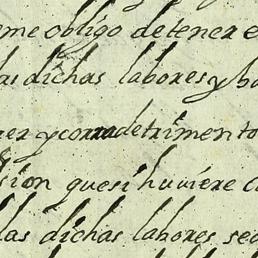 eme obligo detener e
las dichas labores y ba
er y corra detrimento
sion que si huviere c
las dichas labores sea